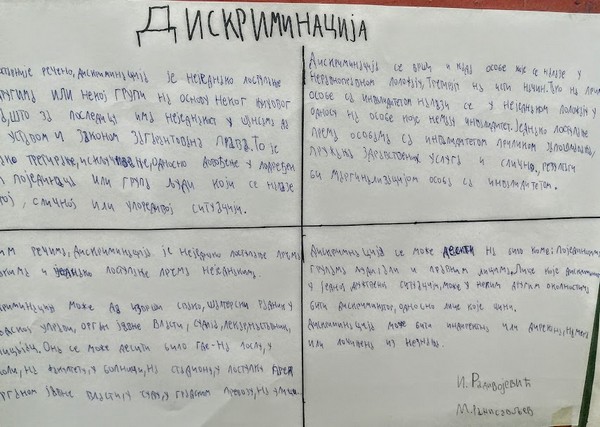 ДИСКРИМИНАЦИЈА
речено, дискриминација је неједнако поступање
ИЛИ некој групи на основу неког њиховог
што за последицу има неједнакост у
уставом и законом загарантована права. То је
односно довођење у подређен
појединаца или група људи који се налазе
сличној или упоредивој ситуацији.
Дискриминација се врши и када особе које се налазе у
неравноправном положају, третирају на исти начин. Тако на пример
особе са инвалидитетом налазе се у неједнаком положају у
односу на особе које немају инвалидитет. Једнако поступање
према особама са инвалидитетом приликом запошљавања,
пружања здравствених услуга и слично,
би маргинализацијом особа са инвалидитетом.
речима, дискриминација је неједнако поступање према
и једнако поступање према неједнаким.
може да изврши свако, шалтерски радник у
управи, орган јавне власти, судија,
Она се може десити било где-на послу, у
на факултету, у болници, на стадиону, у поступку пред
органом јавне власти, у градском превозу, на улици
Дискриминација се може десити на било коме: појединцима,
групама људи али и правним лицима. Лице које
у једној друштвеној ситуацији, може у неким другим околностима
бити дискриминатор, односно лице које чини.
Дискриминација може бити индиректна или директна,
или почињена из незнања.
И. Радивојевић
М.